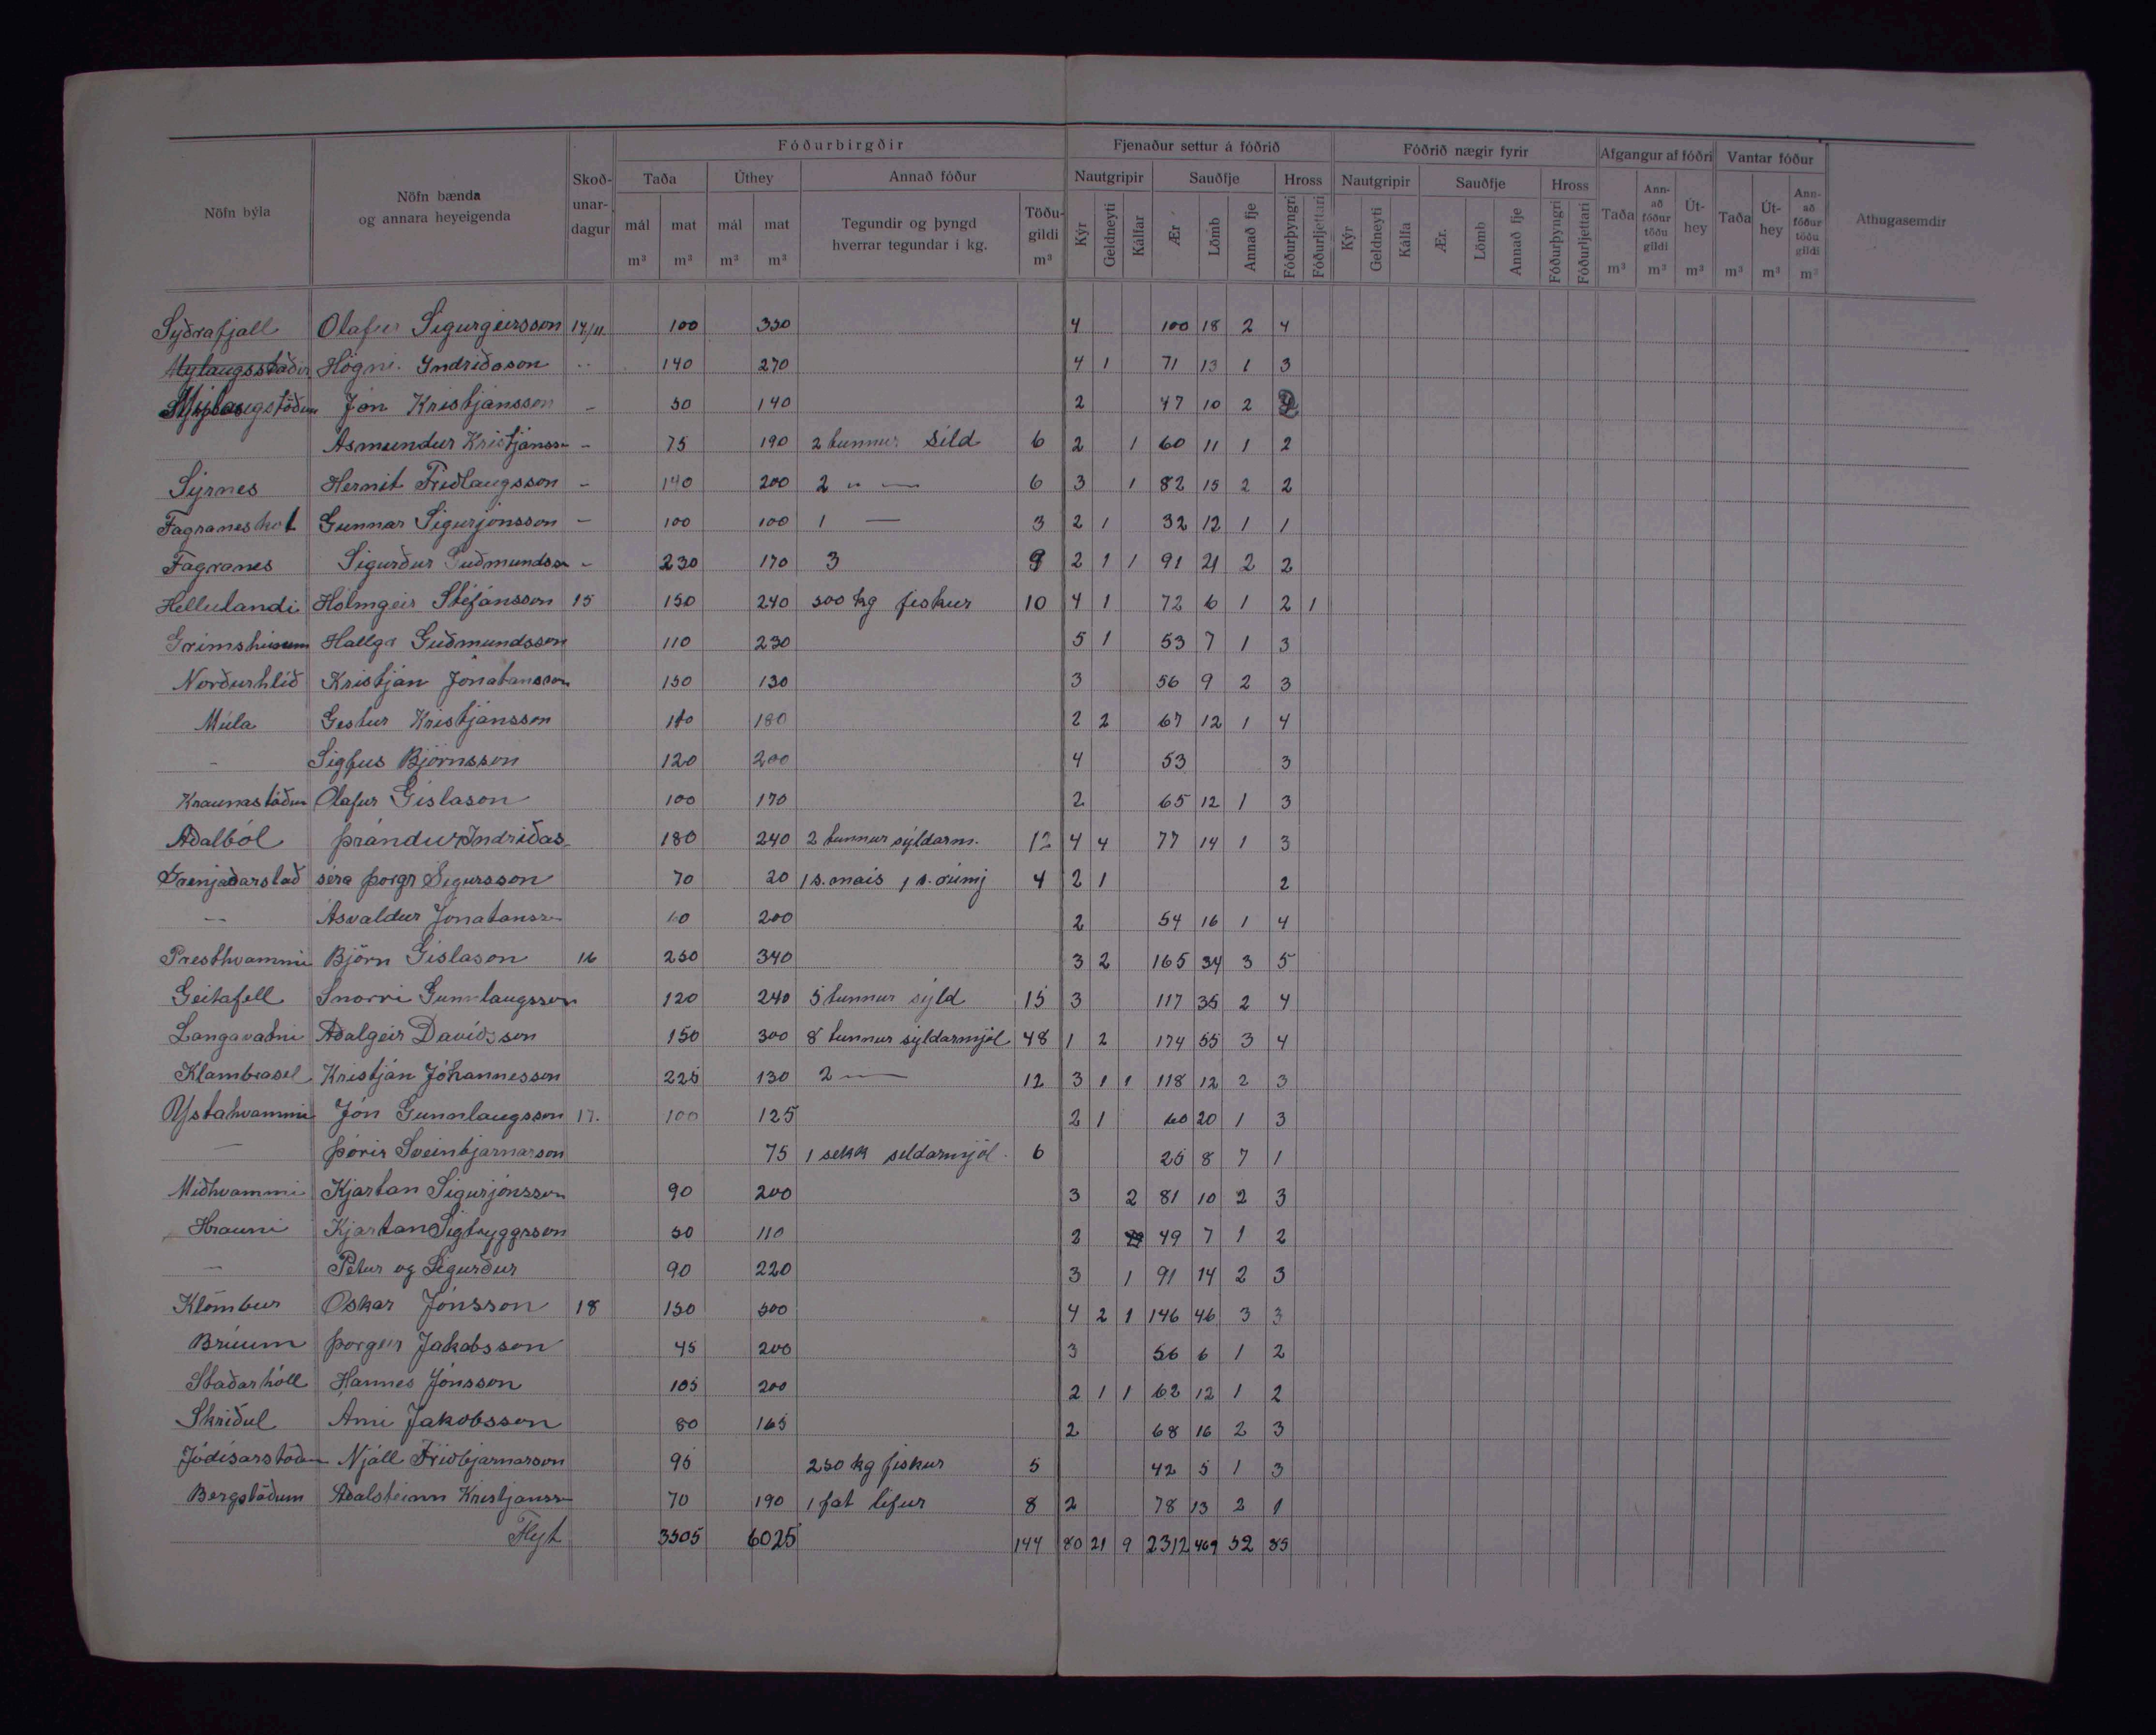 Fóðurbirgðir Fjenaður settur á fóðrið Fóðrið nægir fyrir Afgangur af fóðri Vantar fóður
Nöfn býla Nöfn bænda og annara heyeigenda Skoð-unar-dagur Taða Úthey Annað fóður Nautgripir Sauðfje Hross Nautgripir Sauðfje Hross Taða Ann-að fóður töðu gildi Út-hey Taða Út-hey Ann-að fóður töðu gildi Athugasemdir
mál m³ mat m³ mál m³ mat m³ Tegundir og þyngd hverrar tegundar í kg. Töðu-gildi m³ Kýr Geldneyti Kálfar Ær Lömb Annað fje Fóðurþyngri Fóðurljettari Kýr Geldneyti Kálfa Ær. Lömb Annað fje Fóðurþyngri Fóðurljettari m³ m³ m³ m³ m³ m³
Syðrafjall Olafur Sigurgeirsson 14/11. 100 350 4 100 18 2 4
Mylaugsstaðir Högni Indriðason .. 140 270 4 1 71 13 1 3
Mylaugstöðum Jón Kristjánsson - 50 140 2 47 10 2
Asmundur Kristjánss - 75 190 2 tunnur síld 6 2 1 60 11 1 2
Sýrnes Hernit Friðlaugsson - 140 200 2 " — 6 3 1 82 15 2 2
Fagraneskot Gunnar Sigurjonsson - 100 100 1 — 3 2 1 32 12 1 1
Fagranes Sigurður Guðmundss - 230 170 3 9 2 1 1 91 21 2 2
Hellulandi Holmgeir Stefánsson 15 150 240 500 kg fiskur 10 4 1 72 6 1 2 1
Grimshúsum Hallgr Guðmundsson 110 230 5 1 53 7 1 3
Norðurhlíð Kristján Jónatansson 150 130 3 56 9 2 3
Múla Gestur Kristjánsson 110 180 2 2 67 12 1 4
- Sigfus Björnsson 120 200 4 53 3
Kraunastöðum Olafur Gíslason 100 170 2 65 12 1 3
Aðalból Þrándur Indriðas. 180 240 2 tunnur sýldarm. 12 4 4 77 14 1 3
Grenjaðarstað séra Þorgr Sigursson 70 20 1 s. maís 1 s. rúmj 4 2 1 2
- Asvaldur Jonatanss 200 2 54 16 1 4
Presthvammi Björn Gíslason 16 250 340 3 2 165 34 3 5
Geitafell Snorri Gunnlaugsson 120 240 5 tunnur sýld 15 3 117 35 2 4
Langavatni Aðalgeir Davíðsson 150 300 8 tunnur sýldarmjöl 48 1 2 174 55 3 4
Klambrasel Kristján Jóhannesson 225 130 2 — 12 3 1 1 118 12 2 3
Ystahvammi Jón Gunnlaugsson 17. 100 125 2 1 60 20 1 3
- Þórir Sveinbjarnarson 75 1 sekk seldarmjöl. 6 25 8 7 1
Miðhvammi Kjartan Sigurjónsson 90 200 3 2 81 10 2 3
Hrauni Kjartan Sigtryggsson 50 110 2 49 7 1 2
- Petur og Sigurður 90 220 3 1 91 14 2 3
Klömbur Oskar Jónsson 18 150 500 4 2 1 146 46 3 3
Brúum Þorgeir Jakobsson 45 200 3 56 6 1 2
Staðarhóll Hannes Jónsson 105 200 2 1 1 62 12 1 2
Skriðul Arni Jakobsson 80 165 2 68 16 2 3
Jódísarstöðum Njáll Friðbjarnarson 95 250 kg fiskur 5 42 5 1 3
Bergstöðum Aðalsteinn Kristjanss 70 190 1 fat lifur 8 2 78 13 2 1
Flyt 3505 6025 144 80 21 9 2312 469 52 85